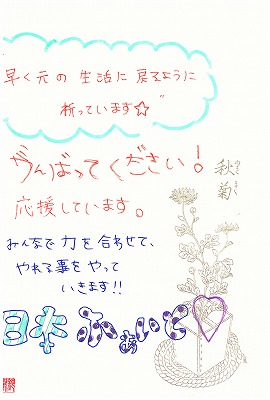 早く元の生活に戻るように
祈っています☆
がんばってください!
応援しています。
みんなで力を合わせて、
やれる事をやって
いきます!!
日本ふぁいと
秋菊